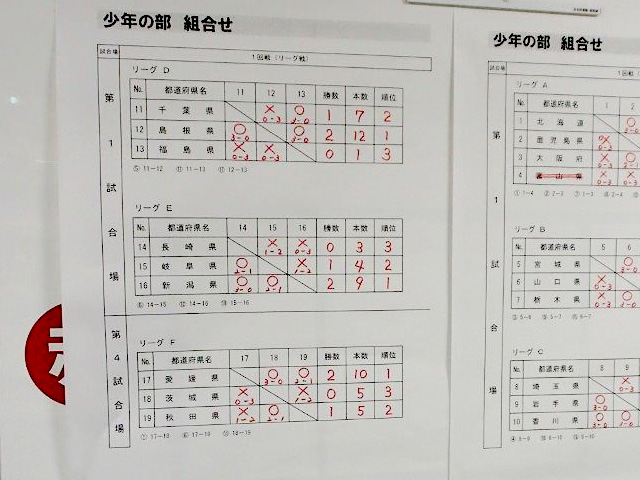 少年の部 組合せ
試合場
1回戦(リーグ戦)
第1試合場
リーグ D
No. 都道府県名 11 12 13 勝数 本数 順位
11 千葉県 × 0-3 ○ 3-0 1 7 2
12 島根県 ○ 3-0 ○ 3-0 2 12 1
13 福島県 × 0-3 × 0-3 0 1 3
11-12 11-13 12-13
リーグ E
No. 都道府県名 14 15 16 勝数 本数 順位
14 長崎県 × 1-2 × 0-3 0 3 3
15 岐阜県 ○ 2-1 × 1-2 1 4 2
16 新潟県 ○ 3-0 ○ 2-1 2 9 1
14-15 14-16 15-16
第4試合場
リーグ F
No. 都道府県名 17 18 19 勝数 本数 順位
17 愛媛県 ○ 3-0 ○ 2-1 2 10 1
18 茨城県 × 0-3 × 1-2 0 5 3
19 秋田県 × 1-2 ○ 2-1 1 5 2
17-18 17-19 18-19
少年の部 組合せ
試合場
第1試合場
リーグ A
No. 都道府県名 1 2
1 北海道 ○ 3-0
2 鹿児島県 × 0-3
3 大阪府 × 0-3 ○
4 富山県 × 0-3 × 0-3
1-4 2-3 1-3 2-4
リーグ B
No. 都道府県名 5 6
5 宮城県 ○ 3-0
6 山口県 × 0-3
7 栃木県 × 0-3 ○
5-6 5-7 6-7
リーグ C
No. 都道府県名 8 9
8 埼玉県 × 0-3
9 岩手県 ○ 3-0
10 香川県 ○ 3-0 ○
8-9 8-10 9-10